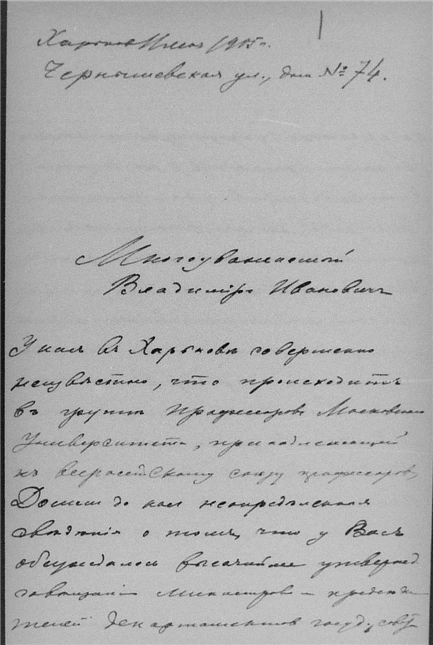 Харьков 11 мая 1905 г.
Чернышевская ул., домъ № 74.
Многоуважаемый
Владимиръ Ивановичъ
У насъ въ Харьковѣ совершенно
неизвѣстно, что происходитъ
въ группѣ Профессоровъ Московскаго
Университета, принадлежащей
къ всероссійскому союзу профессоровъ,
Дошли до насъ неопредѣленныя
свѣдѣнія о томъ, что у Васъ
обсуждалось высочайше утвержд
совѣщаніе Министровъ и предсѣда
телей департаментовъ госуд. совѣ